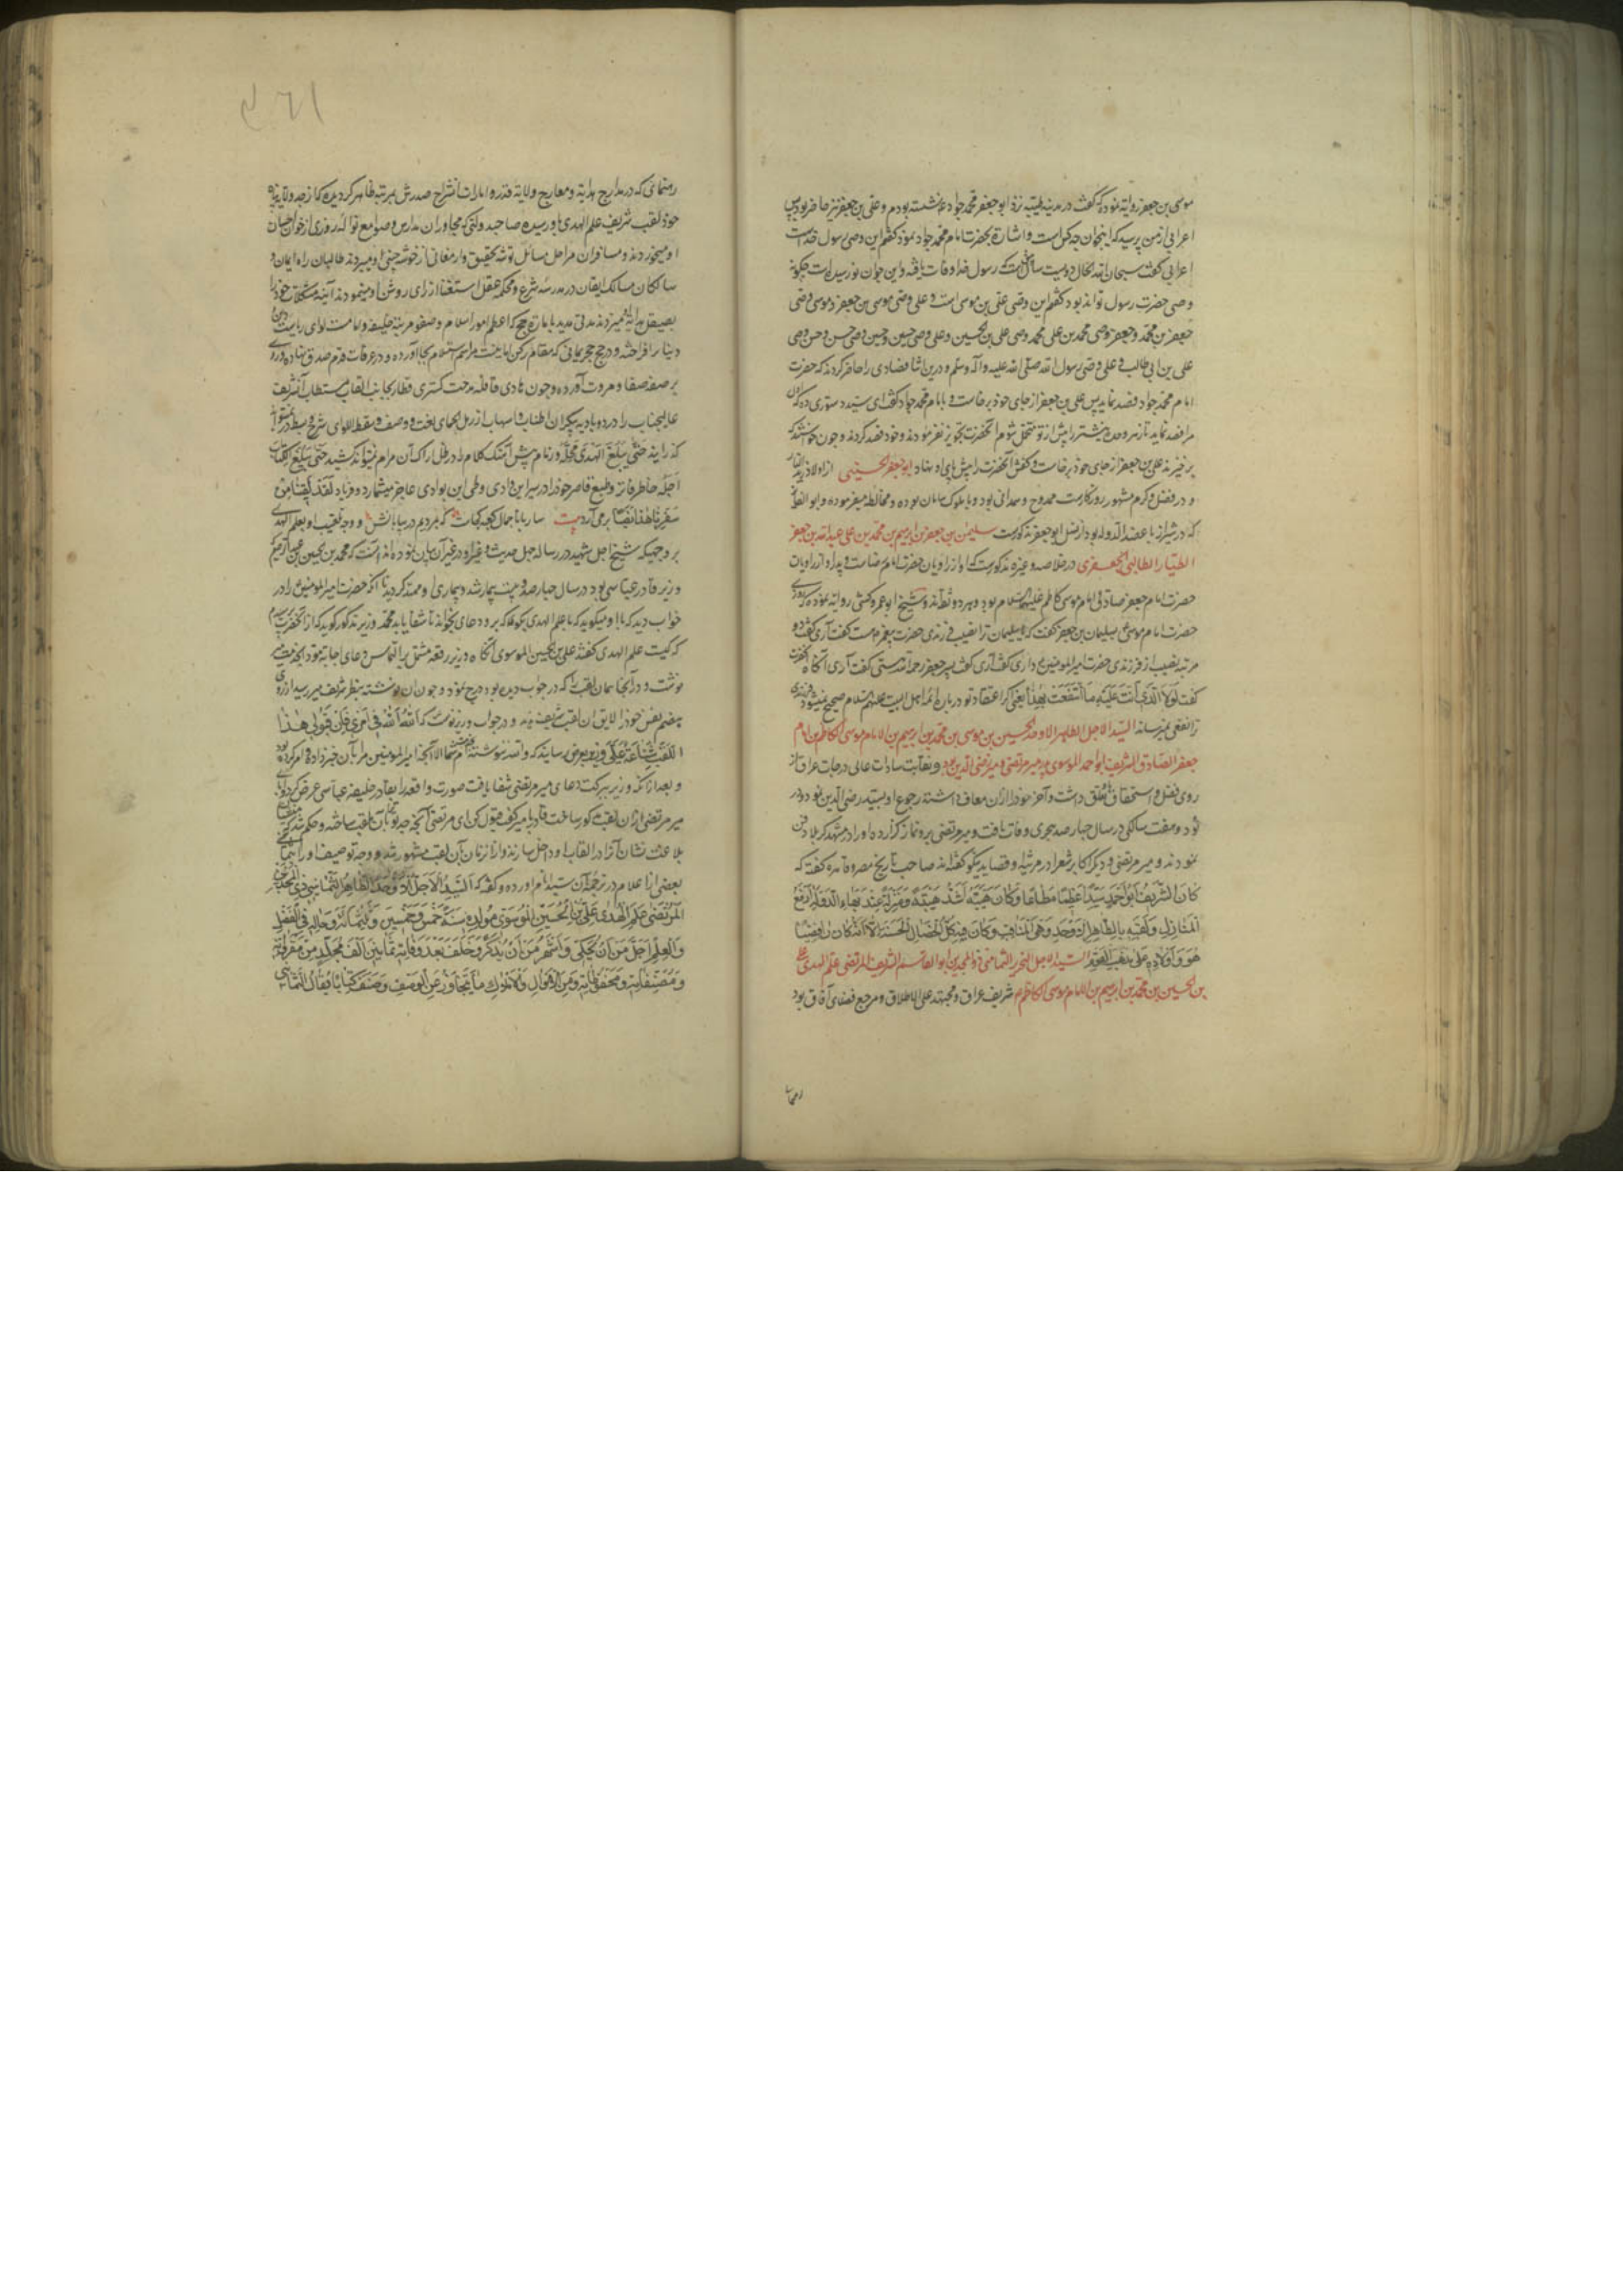 موسی بن جعفر روایة نموده که گفت در مدینه طیبه نزد ابو جعفر محمد جواد ع نشسته بودم و علی بن جعفر نیز حاضر بود پس
اعرابی از من پرسید که اینجوان چه کس است و اشارة بحضرت امام محمد جواد نمود گفتم این وصی رسول خداست
اعرابی گفت سبحان الله الحال دویست سال است که رسول خدا وفات یافته و این جوان نو رسیده است چکونه
وصی حضرت رسول تواند بود گفتم این وصی علی بن موسی است و علی وصی موسی بن جعفر و موسی وصی
جعفر بن محمد و جعفر وصی محمد بن علی و محمد وصی علی بن الحسین و علی وصی حسین و حسین وصی حسن و حسن وصی
علی بن ابی طالب و علی وصی رسول الله صلی الله علیه وآله وسلم و درین اثنا فصادی را حاضر کردند که حضرت
امام محمد جواد فصد نماید پس علی بن جعفر از جای خود برخاست و بامام محمد جواد گفت ای سید دستوری ده که
مرا فصد نماید تا زهر و حدة نیشتر را پیش از تو متحمل شوم آنحضرت تجویز نفرمودند و خود فصد کردند و چون
برخیزند علی بن جعفر از جای خود برخاست و کفش آنحضرت را پیش پای او نهاد ابو جعفر الحسینی از اولاد
و در فضل و کرم مشهور روزگارست ممدوح و سدانی بود و با ملوک سامان بوده و مخالطه میفرموده و ابو الفا
که در شیراز با عضد الدوله بود از نسل ابو جعفر مذکورست سلیمن بن جعفر بن ابرهیم بن محمد بن علی عبدالله بن جعفر
الطیار الطالبی الجعفری در خلاصه و غیره مذکورست که او از راویان حضرت امام رضاست و پدر او از راویان
حضرت امام جعفر صادق و امام موسی کاظم علیهما السلام بود و هر دو ثقه‌اند و شیخ ابو عمرو کشی روایة نموده که روزی
حضرت امام موسی ع بسلیمان بن جعفر گفت که یا سلیمان ترا نصیب فرزندی حضرت پیغمبر هست گفت آری گفت دو
مرتبه نصیب از فرزندی حضرت امیر المؤمنین ع داری گفت آری گفت پسر جعفر رحمة الله هستی گفت آری آنگاه
گفت لَولا الَّذی اَنتَ عَلَیهِ مَا انتَفَعتَ بِهذا یعنی اگر اعتقاد تو درباره ائمه اهل البیت علیهم السلام صحیح نمیشود
ترا نفعی نمیرساند السید الاجل الطاهر الاوحد الحسین بن موسی بن محمد بن ابرهیم بن الامام موسی الکاظم بن امام
جعفر الصادق الشریف ابو احمد الموسوی پدر میر مرتضی و میر رضی الدین بود و نقابت سادات عالی درجات عراق از
روی فضل و استحقاق تعلق داشت و آخر خود را از آن معاف داشته رجوع او بسید رضی الدین نمود و در
نود و هفت سالگی در سال چهارصد هجری وفات یافت و میر مرتضی برو نماز گزارده او را در مشهد کربلا دفن
نمودند و میر مرتضی و دیگر اکابر شعرا در مرثیه او قصاید نیکو گفته‌اند صاحب تاریخ مصر و قاهره گفته که
کَانَ الشَّریفُ اَبُو اَحمَد سَیِّداً عَظیماً مُطاعاً وَ کَانَ هَیبَتُهُ اَشَدَّ هَیبَةٍ وَ مَنزِلَةً عِندَ بَهاءِ الدَّولَةِ اَرفَعُ
المَنازِلِ وَ لَقَّبَهُ بِالطّاهِرِ الاَوحَدِ وَ ذِی المَناقِبِ وَ کَانَ فیهِ کُلُّ الخِصالِ الحَسَنَةِ اِلّا اَنَّهُ کانَ رافِضیّاً
هُوَ وَ اَولادُهُ عَلی مَذهَبِ القَومِ السید الاجل النحریر الثمانینی ذو المجدین ابو القاسم الشریف المرتضی علم الهدی علی
بن الحسین بن محمد بن ابرهیم بن الامام موسی الکاظم شریف عراق و مجتهد علی الاطلاق و مرجع فضلای آفاق بود
رهنما
رهنمای که در مدارج هدایة و معارج ولایة قدر و امارات انشراح صدرش بمرتبه ظاهر گردیده که از جد ولایة پناه
خود لقب شریف علم الهدی باو رسیده صاحب دولتی که مجاوران مدارس و صوامع نواله روزی از خوان احسان
او میخوردند و مسافران مراحل مسائل توشه تحقیق و ارمغانی از خوشه چینی او میبردند طالبان راه ایمان و
سالکان مسالک ایقان در مدرسه شرع و محکمه عقل استفتا از رای روشن او مینمودند آینه مشکلات خود را
بصیقل هدایة میزدند مدتی مدید بامارة حج که اعظم امور اسلام و صفو مرتبه خلیفه و امامست لوای ریاست
دینا برافراخته و در حج حجر یمانی که مقام رکن ایمانست مراسم استلام بجا آورده و در عرفات قدم صدق نهاده و روی
بر صفه صفا و مروت آورده و چون هادی قافله مدحت گستری قطار نجایب القاب مستطاب آنشریف
عالیجناب را در دو بادیه بیکران اطناب و اسهاب از رمل الحمای نعت و وصف و سقط اللوای شرح و بسط
گذرانید حَتّی یَبلُغَ الهَدیُ مَحِلَّهُ
اَجَلَهُ خاطر فاتر و طبع قاصر خود را در سیر این وادی و طی این بوادی عاجز میشمارد و فریاد لَقَد لَقینا مِن
سَفَرِنا هذا نَصَباً برمی‌آرد بیت ساربانا جمال کعبه کجاست که بمردیم در بیابانش و وجه تلقیب او بعلم الهدی
بر وجهیکه شیخ اجل شهید در رساله چهل حدیث و غیر او در غیر آن بیان نموده‌اند آنست که محمد بن الحسین بن عبد الرحیم
وزیر قادر عباسی بود در سال چهارصد و بیست بیمار شد و بیماری او ممتد گردید تا آنکه حضرت امیر المؤمنین ع را در
خواب دید که با او میگوید که با علم الهدی بگو که برو دعای بخواند تا شفا یابد محمد وزیر مذکور گوید که از آنحضرت پرسیدم
که کیست علم الهدی گفت علی بن الحسین الموسوی آنگاه وزیر رقعه مشتمل بر التماس دعای اجابة مؤدا بخدمت
نوشت و در آنجا همان لقب را که در خواب دیده بود درج نمود و چون آن نوشته بنظر شریف میر رسید از روی
هضم نفس خود را لایق آن لقب شریف ندید و در جواب وزیر نوشت که اَللهَ اَللهَ فی اَمری فَاِنَّ قَبُولی هذَا
اللَّقَبَ شَناعَةٌ عَلَیَّ وزیر بعرض رسانید که والله ننوشته‌ام بخدمت شما الا آنچه امیر المؤمنین مرا بآن خبر داده و امر کرده بود
و بعد از آنکه وزیر ببرکت دعای میر مرتضی شفا یافت صورت واقعه را بقادر خلیفه عباسی عرض کرد و ابا
میر مرتضی از آن لقب مذکور ساخت قادر با میر گفت قبول کن ای مرتضی آنچه جد تو بآن ملقب ساخته و حکم شد که منشیان
بلاغت نشان آنرا در القاب او داخل سازند و از آن زمان بآن لقب مشهور شد و وجه توصیف او را بثمانینی
بعضی از اعلام در ترجمه آن سید انام آورده و گفته که اَلسَّیِّدُ الاَجَلُّ الاَوحَدُ الطّاهِرُ الثَّمانینی ذُو المَجدَین
المُرتَضی عَلَمُ الهُدی عَلِیُّ بنُ الحُسَینِ المُوسَوی مَولِدُهُ سَنَةُ خَمسٍ وَ خَمسینَ وَ ثَلثمائَةٍ وَ حالُهُ فِی الفَضلِ
وَ العِلمِ اَجَلُّ مِن اَن یُحکی وَ اَشهَرُ مِن اَن یُذکَرَ وَ خَلَّفَ بَعدَ وَفاتِهِ ثَمانینَ اَلفَ مُجَلَّدٍ مِن مَقرُوّاتِهِ
وَ مُصَنَّفاتِهِ وَ مَحفُوظاتِهِ وَ مِنَ الاَموالِ وَ الاَملاکِ ما یَتَجاوَزُ عَنِ الوَصفِ وَ صَنَّفَ کِتاباً یُقالُ لَهُ الثَّمانینَ